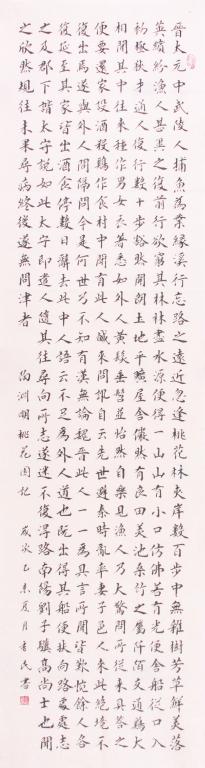 晉太元中武陵人捕魚為業緣溪行忘路之遠近忽逢桃花林夾岸數百步中無雜樹芳草鮮美落
英繽紛漁人甚異之復前行欲窮其林林盡水源便得一山山有小口彷彿若有光便舍船從口入
初極狹才通人復行數十步豁然開朗土地平曠屋舍儼然有良田美池桑竹之屬阡陌交通雞犬
相聞其中往來種作男女衣著悉如外人黃髮垂髫並怡然自樂見漁人乃大驚問所從來具答之
便要還家設酒殺雞作食村中聞有此人咸來問訊自云先世避秦時亂率妻子邑人來此絕境不
復出焉遂與外人間隔問今是何世乃不知有漢無論魏晉此人一一為具言所聞皆歎惋餘人各
復延至其家皆出酒食停數日辭去此中人語云不足為外人道也既出得其船便扶向路處處志
之及郡下詣太守說如此太守即遣人隨其往尋向所志遂迷不復得路南陽劉子驥高尚士也聞
之欣然規往未果尋病終後遂無問津者 陶渊明桃花园記 歲次乙未夏月